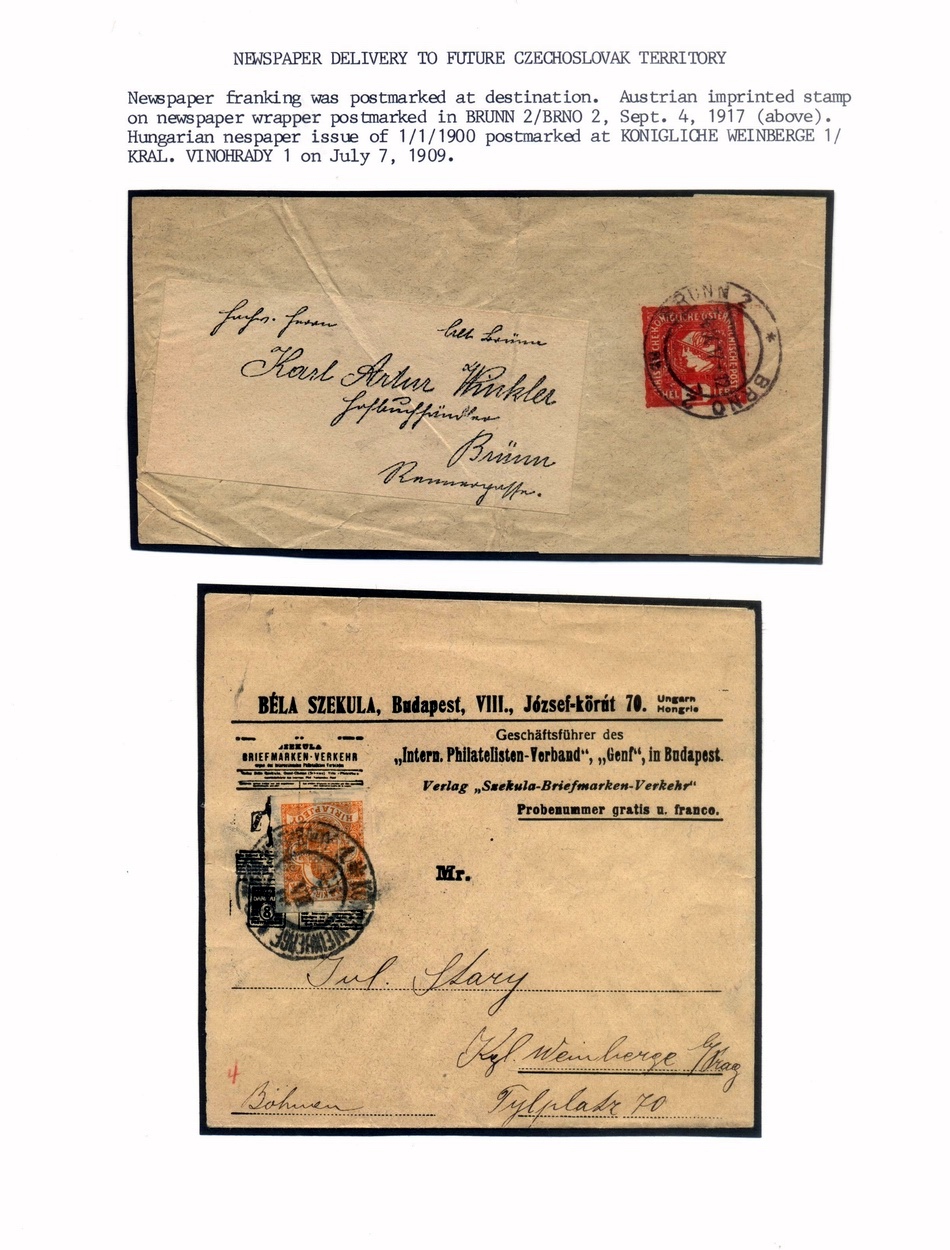 NEWSPAPER DELIVERY TO FUTURE CZECHOSLOVAK TERRITORY
Newspaper franking was postmarked at destination. Austrian imprinted stamp
on newspaper wrapper postmarked in BRUNN 2/BRNO 2, Sept. 4, 1917 (above).
Hungarian nespaper issue of 1/1/1900 postmarked at KONIGLICHE WEINBERGE 1/
KRAL. VINOHRADY 1 on July 7, 1909.
BRÜNN 2
BRNO 2
Herrn
Brünn
Karl Artur Winkler
Hofbuchhändler
Brünn
Rennergasse.
BÉLA SZEKULA, Budapest, VIII., József-körút 70. Ungarn
Hongrie
Geschäftsführer des
„Intern. Philatelisten-Verband“, „Genf“, in Budapest.
SZEKULA
BRIEFMARKEN-VERKEHR
Verlag „Szekula-Briefmarken-Verkehr“
Probenummer gratis u. franco.
HIRLAPJEGY
WEINBERGE
Mr.
Jul. Stary
Kgl. Weinberge b/Prag
4
Böhmen
Tylplatz 70